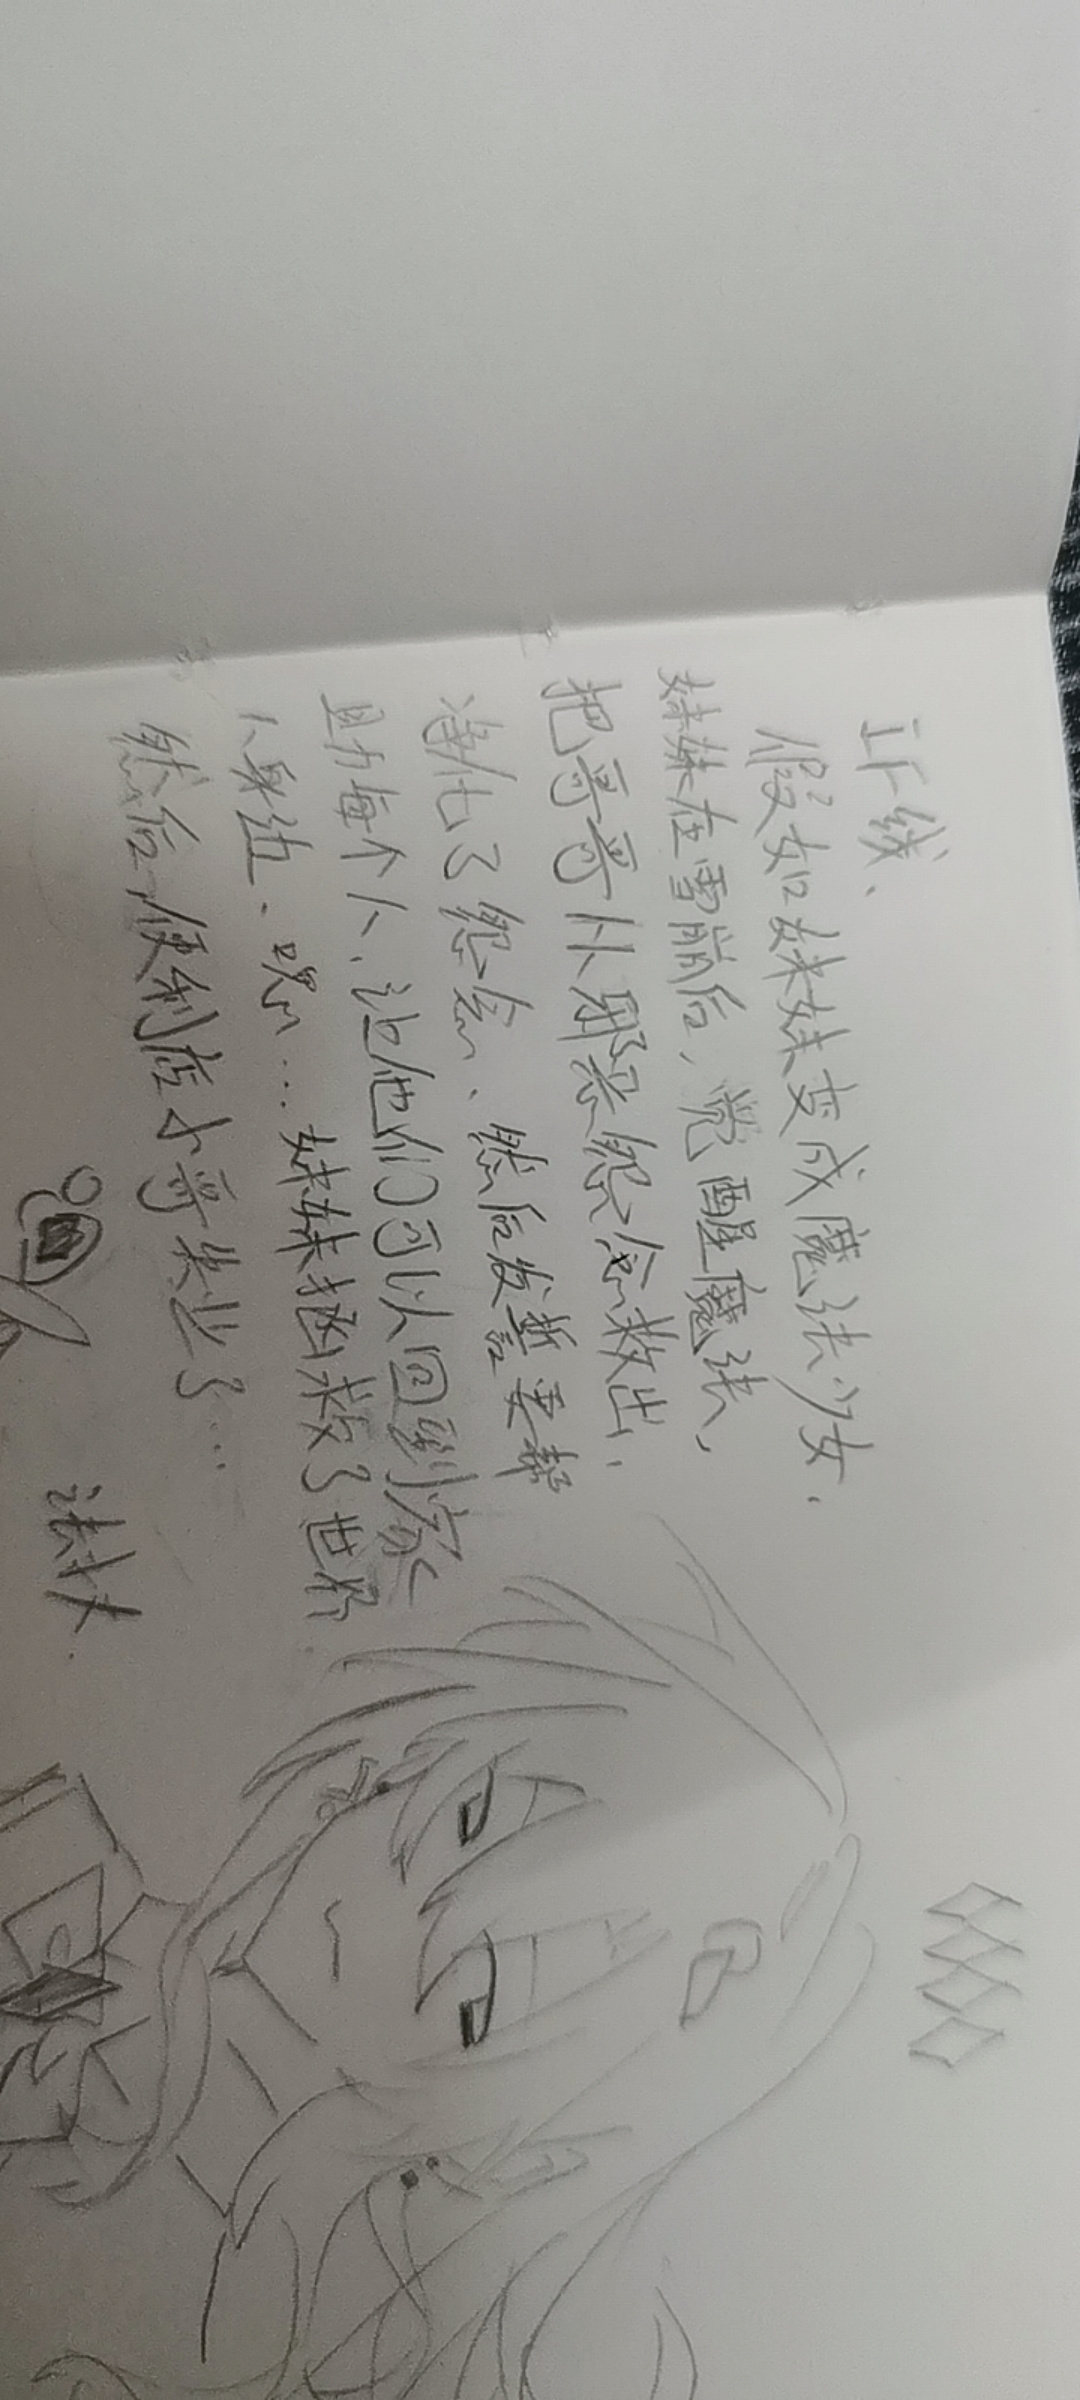 IF线、
假如妹妹变成魔法少女.
妹妹在雪崩后,觉醒魔法,
把哥哥从邪恶怨念救出,
净化了怨念、然后发誓要帮
助每个人、让他们可以回到家
人身边、嗯…妹妹拯救了世界.
然后,便利店小哥失业了…
法杖.